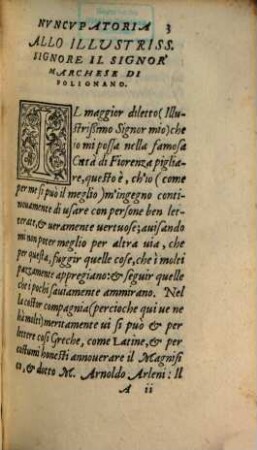 NVNCVPATORIA 3
ALLO ILLVSTRISS.
SIGNORE IL SIGNOR
MARCHESE DI
POLIGNANO.
IL maggior diletto (Illu-
strißimo Signor mio) che
io mi possa nella famosa
Città di Fiorenza piglia-
re, questo è, ch'io (come
per me si può il meglio) m'ingegno conti-
nouamente di usare con persone ben let-
terate, & ueramente uertuose; auisando
mi non poter meglio per altra uia, che
per questa, fuggir quelle cose, che è molti
pazzamente appregiano: & seguir quelle
che i pochi sauiamente ammirano. Nel
la costor compagnia (percioche qui ue ne
hà molti) meritamente ui si può & per
lettere cosi Greche, come Latine, & per
costumi honesti annouerare il Magnifi
co, & ditto M. Arnoldo Arleni: Il
A ii